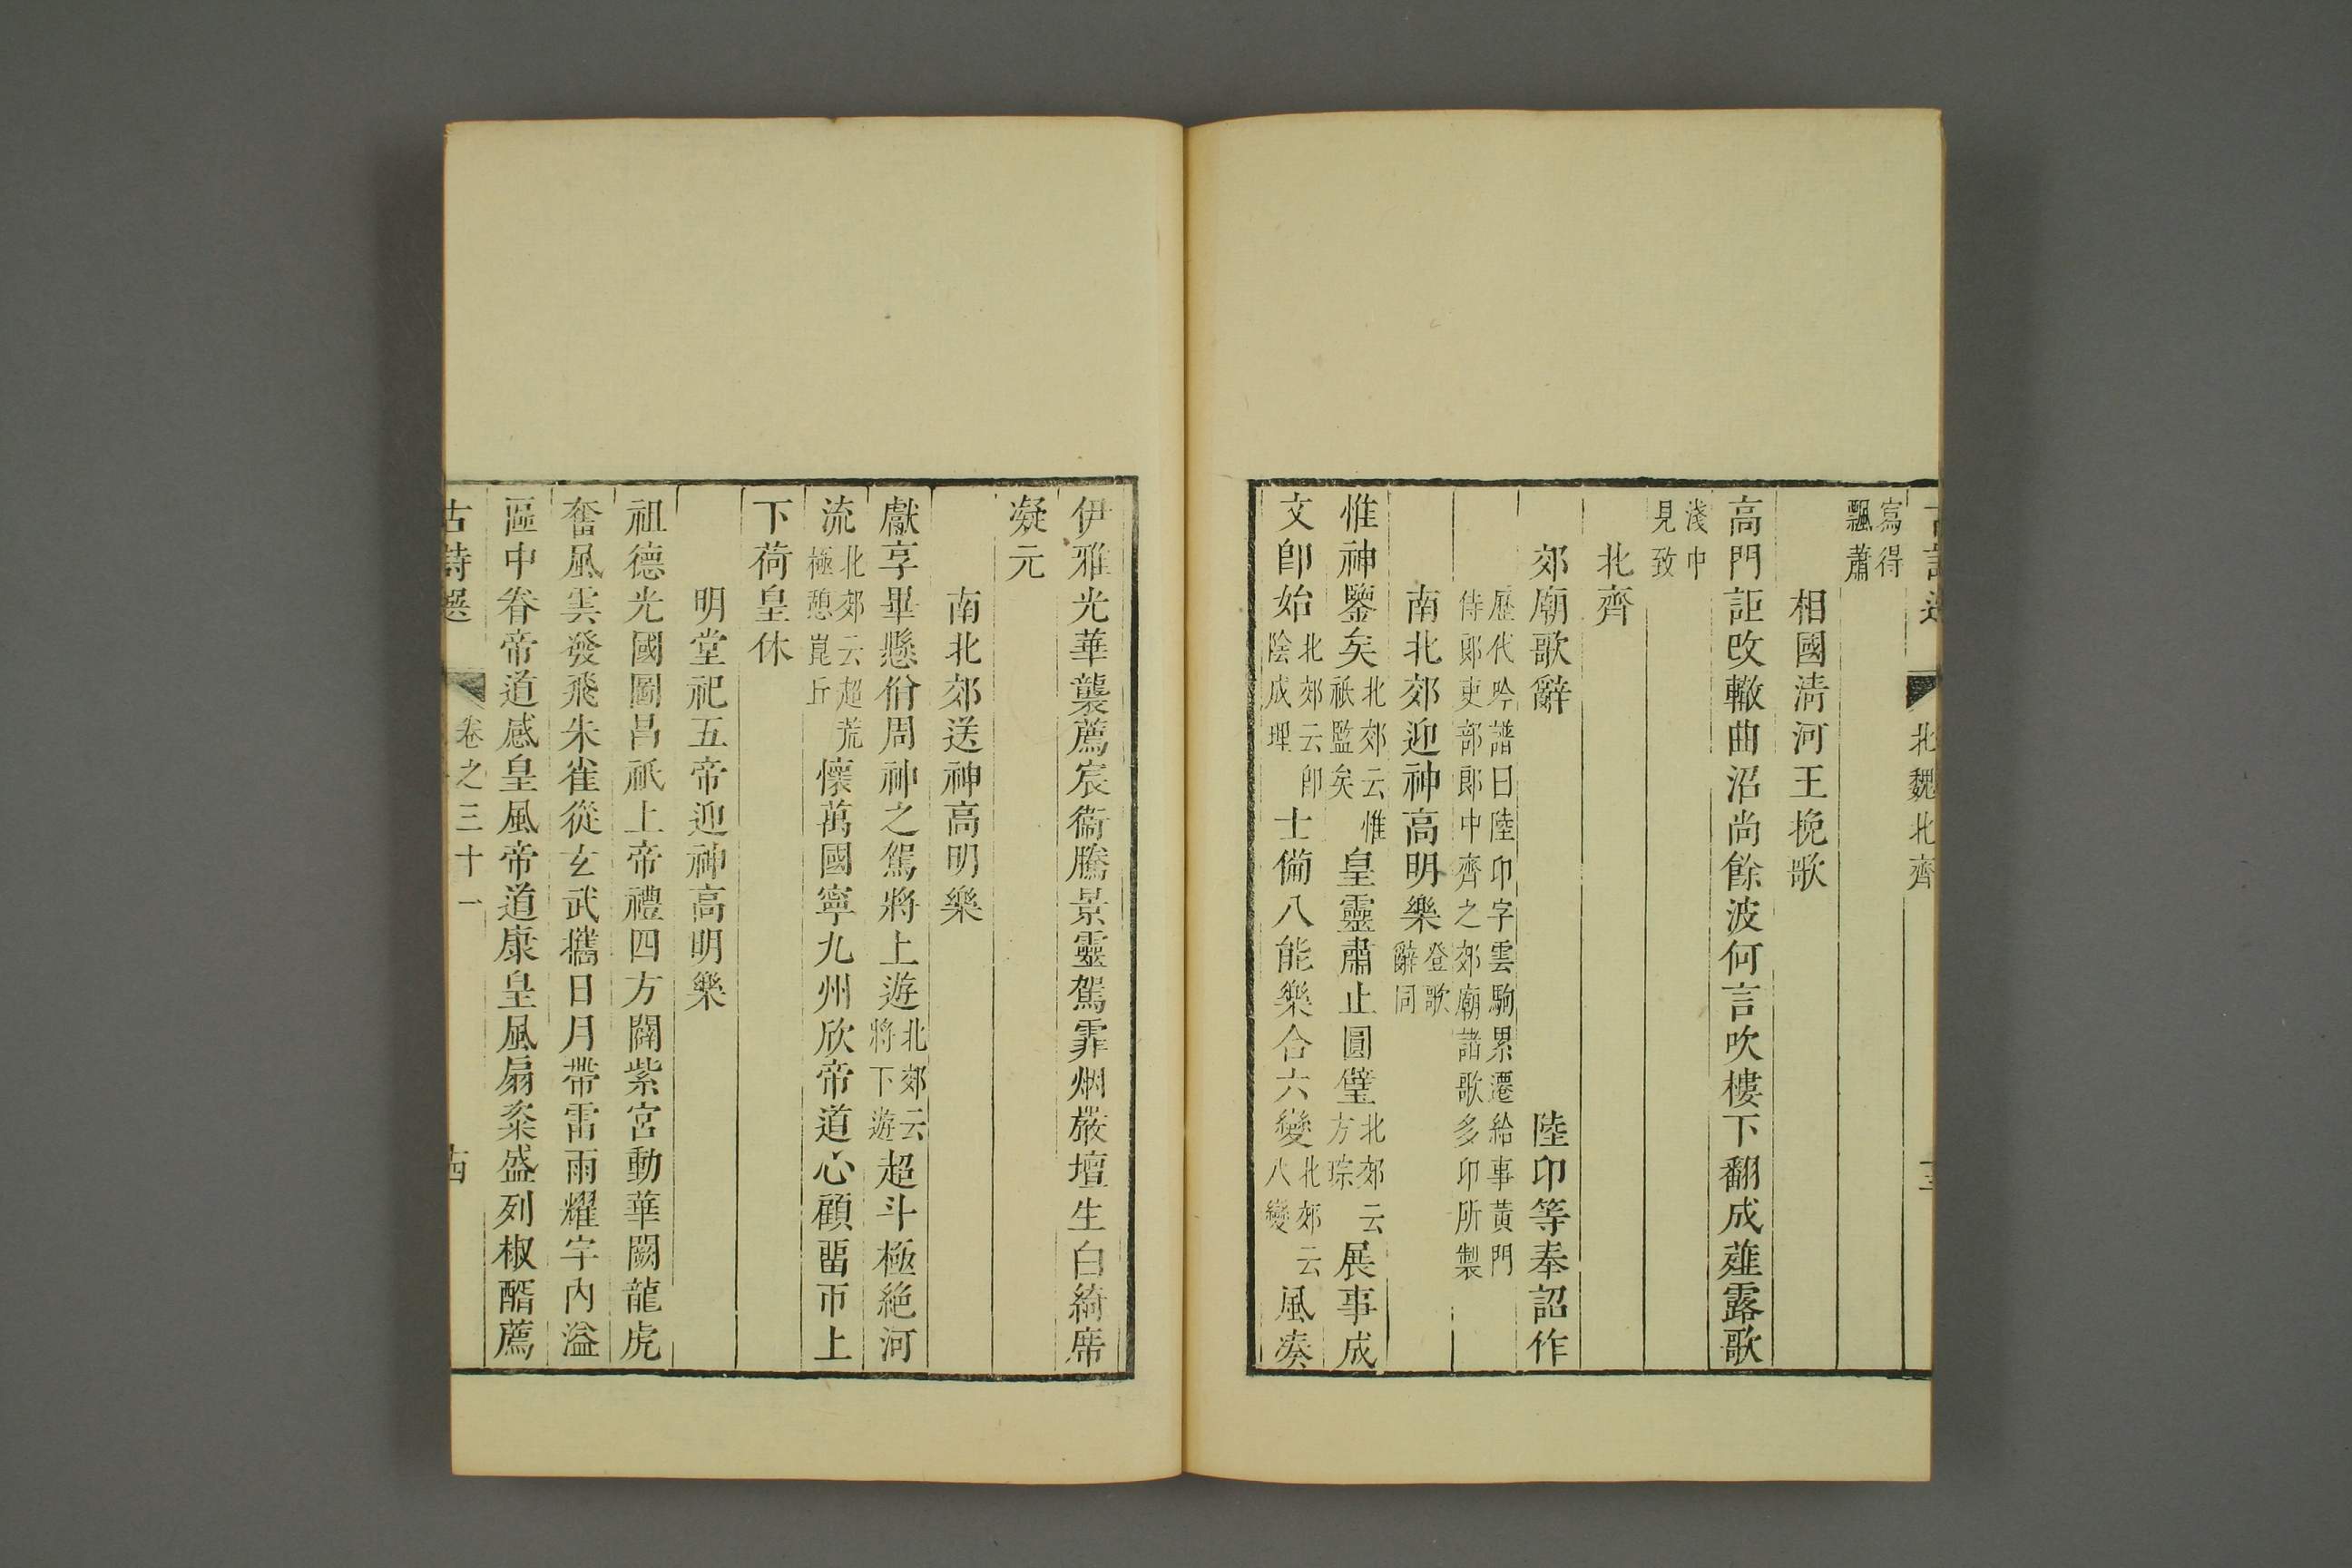 北魏北齊
寫得
飄蕭
相國淸河王挽歌
高門詎改轍曲沼尚餘波何言吹樓下翻成薤露歌
淺中
見致
北齊
郊廟歌辭 陸卬等奉詔作
歷代吟譜曰陸卬字雲駒累遷給事黃門
侍郞吏部郞中齊之郊廟諸歌多卬所製
南北郊迎神高明樂登歌
辭同
惟神鑒矣北郊云惟
祇監矣皇靈肅止圓璧北郊云
方琮展事成
文卽始北郊云卽
陰成理士備八能樂合六變北郊云
八變風湊
伊雅光華襲薦宸衞騰景靈駕霏烟嚴壇生白綺席
凝元
南北郊送神高明樂
獻享畢懸佾周神之駕將上遊北郊云
將下遊超斗極絕河
流北郊云超荒
極憩崑丘懷萬國寧九州欣帝道心顧畱帀上
下荷皇休
明堂祀五帝迎神高明樂
祖德光國圖昌祇上帝禮四方闢紫宮動華闕龍虎
奮風雲發飛朱雀從玄武攜日月帶雷雨耀宇內溢
區中眷帝道感皇風帝道康皇風扇粢盛列椒醑薦
古詩選 卷之三十一